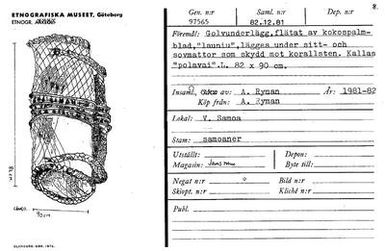 ETNOGRAFISKA MUSEET, Göteborg
ETNOGR.
82 cm
90cm
Gen. n:r Saml. n:r Dep. n:r
8.
97565 82.12.81
Föremål: Golvunderlägg, flätat av kokospalm-
blad, "launiu", lägges under sitt- och
sovmattor som skydd mot korallsten. Kallas
"polavai". L. 82 x 90 cm.
Insaml. av: A. Ryman År: 1981-82
Köp från: A. Ryman
Lokal: V. Samoa
Stam: samoaner
Utställt: Depon:
Magasin: Byte till:
Negat n:r Bild n:r
Skiopt. n:r Kliché n:r
Publ.